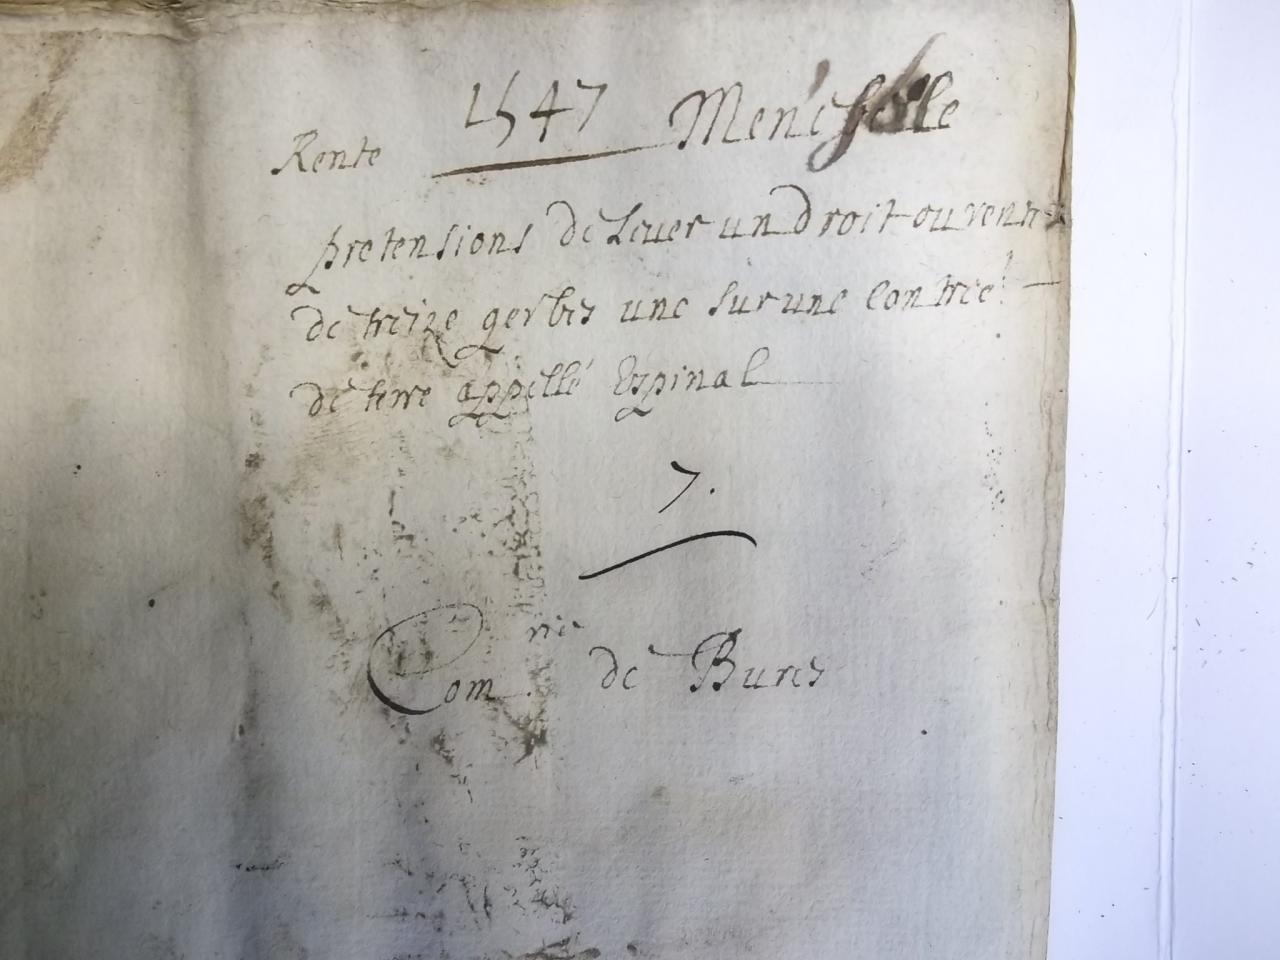 Rente 1547
pretensions de Lever un droit ou rente
de treize gerbes une sur une contree
de terre appellé Espinal
7.
Com rie de Bures